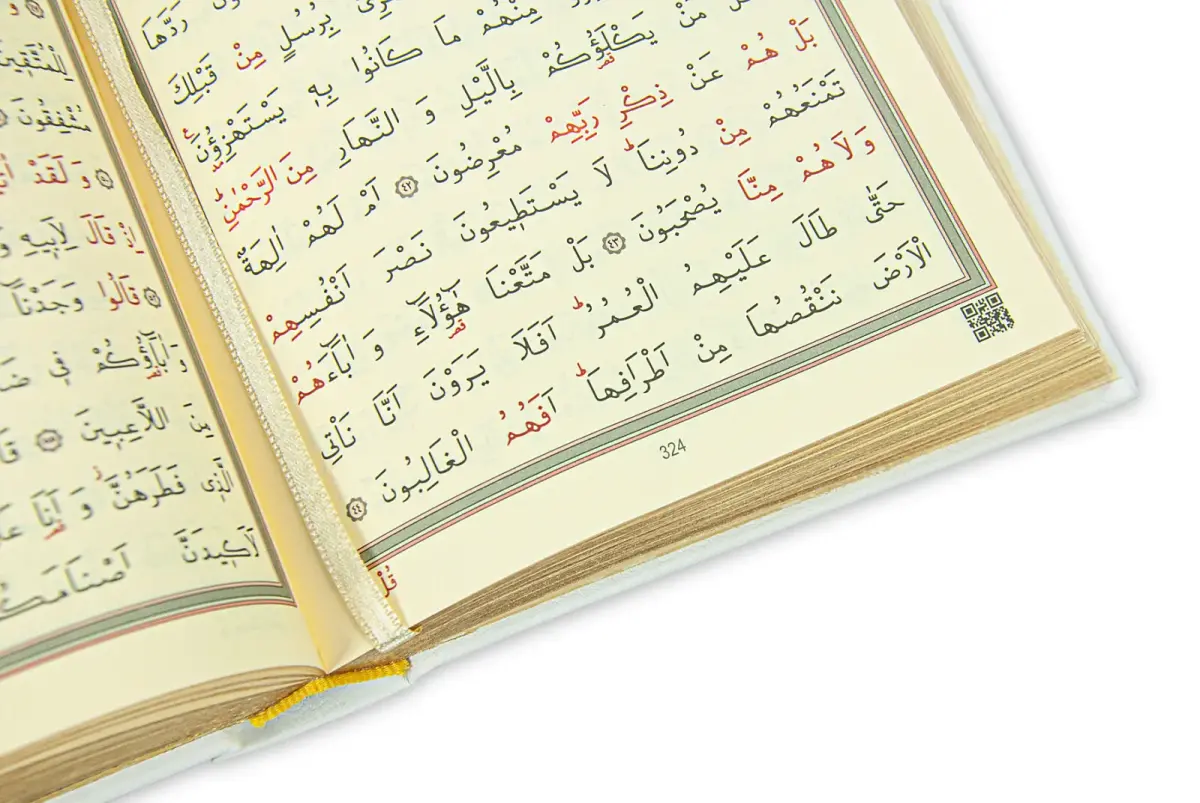 رَدَّهَا
بِرُسُلٍ مِنْ قَبْلِكَ
مِنْهُمْ مَا كَانُوا بِه۪ يَسْتَهْزِؤُ۫نَ
مَنْ يَكْلَؤُكُمْ بِالَّيْلِ وَ النَّهَارِ مِنَ الرَّحْمٰنِۜ
بَلْ هُمْ عَنْ ذِكْرِ رَبِّهِمْ مُعْرِضُونَ ٤٢ اَمْ لَهُمْ اٰلِهَةٌ
تَمْنَعُهُمْ مِنْ دُونِنَاۜ لَا يَسْتَط۪يعُونَ نَصْرَ اَنْفُسِهِمْ
وَ لَا هُمْ مِنَّا يُصْحَبُونَ ٤٣ بَلْ مَتَّعْنَا هٰٓؤُ۬لَٓاءِ وَ اٰبَٓاءَهُمْ
حَتّٰى طَالَ عَلَيْهِمُ الْعُمُرُۜ اَفَلَا يَرَوْنَ اَنَّا نَاْتِي
الْاَرْضَ نَنْقُصُهَا مِنْ اَطْرَافِهَاۜ اَفَهُمُ الْغَالِبُونَ ٤٤
324
قُلْ
لِلْمُتَّق۪ينَ
مُشْفِقُونَ
وَ لَقَدْ
اِذْ قَالَ لِاَب۪يهِ
قَالُوا وَجَدْنَٓا
وَ اٰبَٓاؤُ۬كُمْ ف۪ي
مِنَ اللَّاعِب۪ينَ
الَّذ۪ي فَطَرَهُنَّۘ وَ اَنَا۬
لَاَك۪يدَنَّ اَصْنَامَكُ